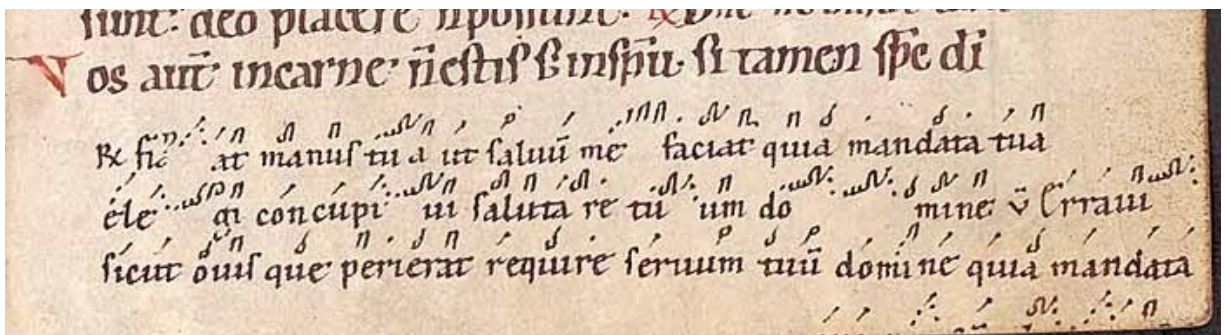 sunt: deo placere n̄ possunt.
Vos aut̄ incarne n̄ estis s; insp̄u. si tamen sp̄c dī
R̷ fiat manus tua ut saluū me faciat quia mandata tua
elegi concupiui salutare tuum domine v̄ Erraui
sicut ouis que perierat require seruum tuū domine quia mandata